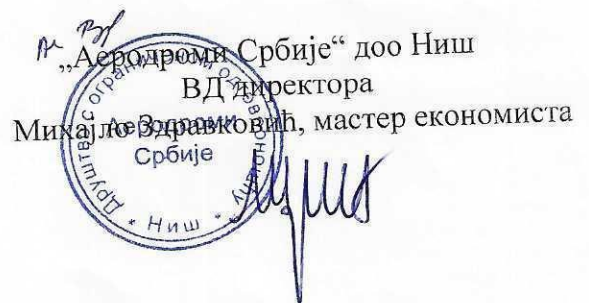 „Аеродроми Србије“ доо Ниш
ВД директора
Михајло Здравковић, мастер економиста
Друштво с ограниченом одговорношћу
Аеродроми
Србије
* Ниш *